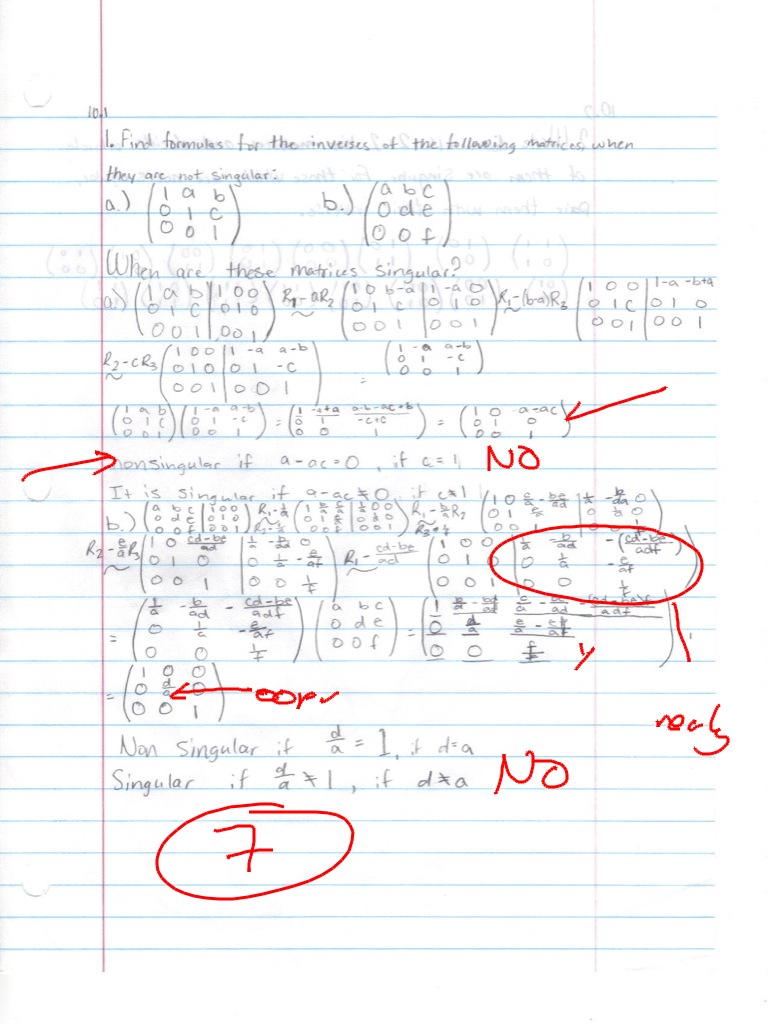 10.1
1. Find formulas for the inverses of the following matrices, when
they are not singular:
a.) (1 a b / 0 1 c / 0 0 1) b.) (a b c / 0 d e / 0 0 f)
When are these matrices singular?
a.) (1 a b | 1 0 0 / 0 1 c | 0 1 0 / 0 0 1 | 0 0 1) R₁-aR₂ ~ (1 0 b-a | 1 -a 0 / 0 1 c | 0 1 0 / 0 0 1 | 0 0 1) R₁-(b-a)R₃ ~ (1 0 0 | 1 -a -b+a / 0 1 c | 0 1 0 / 0 0 1 | 0 0 1
R₂-cR₃ ~ (1 0 0 | 1 -a a-b / 0 1 0 | 0 1 -c / 0 0 1 | 0 0 1) = (1 -a a-b / 0 1 -c / 0 0 1)
(1 a b / 0 1 c / 0 0 1) (1 -a a-b / 0 1 -c / 0 0 1) = (1 -a+a a-b-ac+b / 0 1 -c+c / 0 0 1) = (1 0 a-ac / 0 1 0 / 0 0 1)
nonsingular if a-ac=0, if c=1, NO
It is singular if a-ac≠0, if c≠1
b.) (a b c | 1 0 0 / 0 d e | 0 1 0 / 0 0 f | 0 0 1)
R₂-e/a R₃ ~ (1 0 cd-be/ad | 1/a -b/ad 0 / 0 1 0 | 0 1/a -e/af / 0 0 1 | 0 0 1/f) R₁-cd-be/ad ~ (1 0 0 | 1/a -b/ad -(cd-be/adf) / 0 1 0 | 0 1/a -e/af / 0 0 1 | 0 0 1/f
= (1/a -b/ad -cd-be/adf / 0 1/a -e/af / 0 0 1/f) (a b c / 0 d e / 0 0 f) =
= (1 0 0 / 0 d/a 0 / 0 0 1)
Non Singular if d/a = 1, if d=a
Singular if d/a ≠ 1, if d≠a NO
7